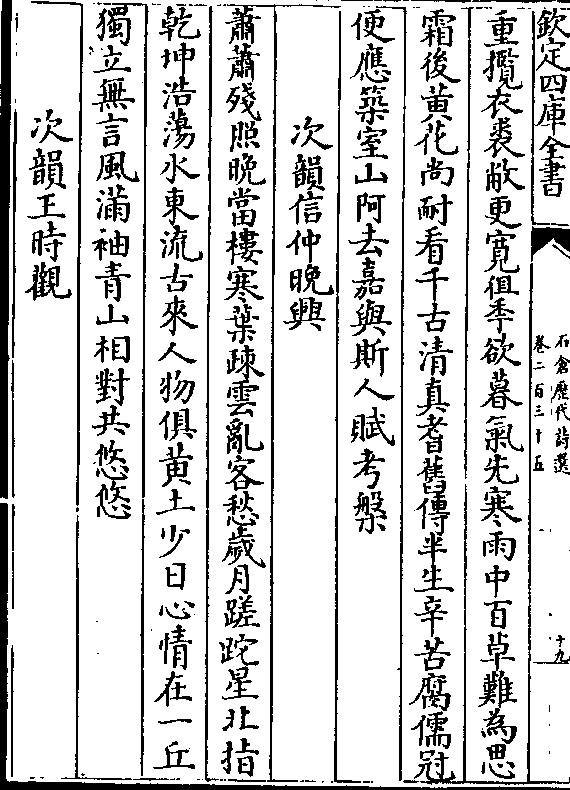 欽定四庫全書
石倉歷代詩選
卷二百三十五
十九
重攬衣裘敝更寛徂季欲暮氣先寒雨中百草難為思
霜後黄花尚耐看千古清真耆舊傳半生辛苦腐儒冠
便應築室山阿去嘉與斯人賦考槃
次韻信仲晚興
蕭蕭殘照晚當樓寒葉疎雲亂客愁歲月蹉跎星北指
乾坤浩蕩水東流古來人物俱黄土少日心情在一丘
獨立無言風滿袖青山相對共悠悠
次韻王時觀